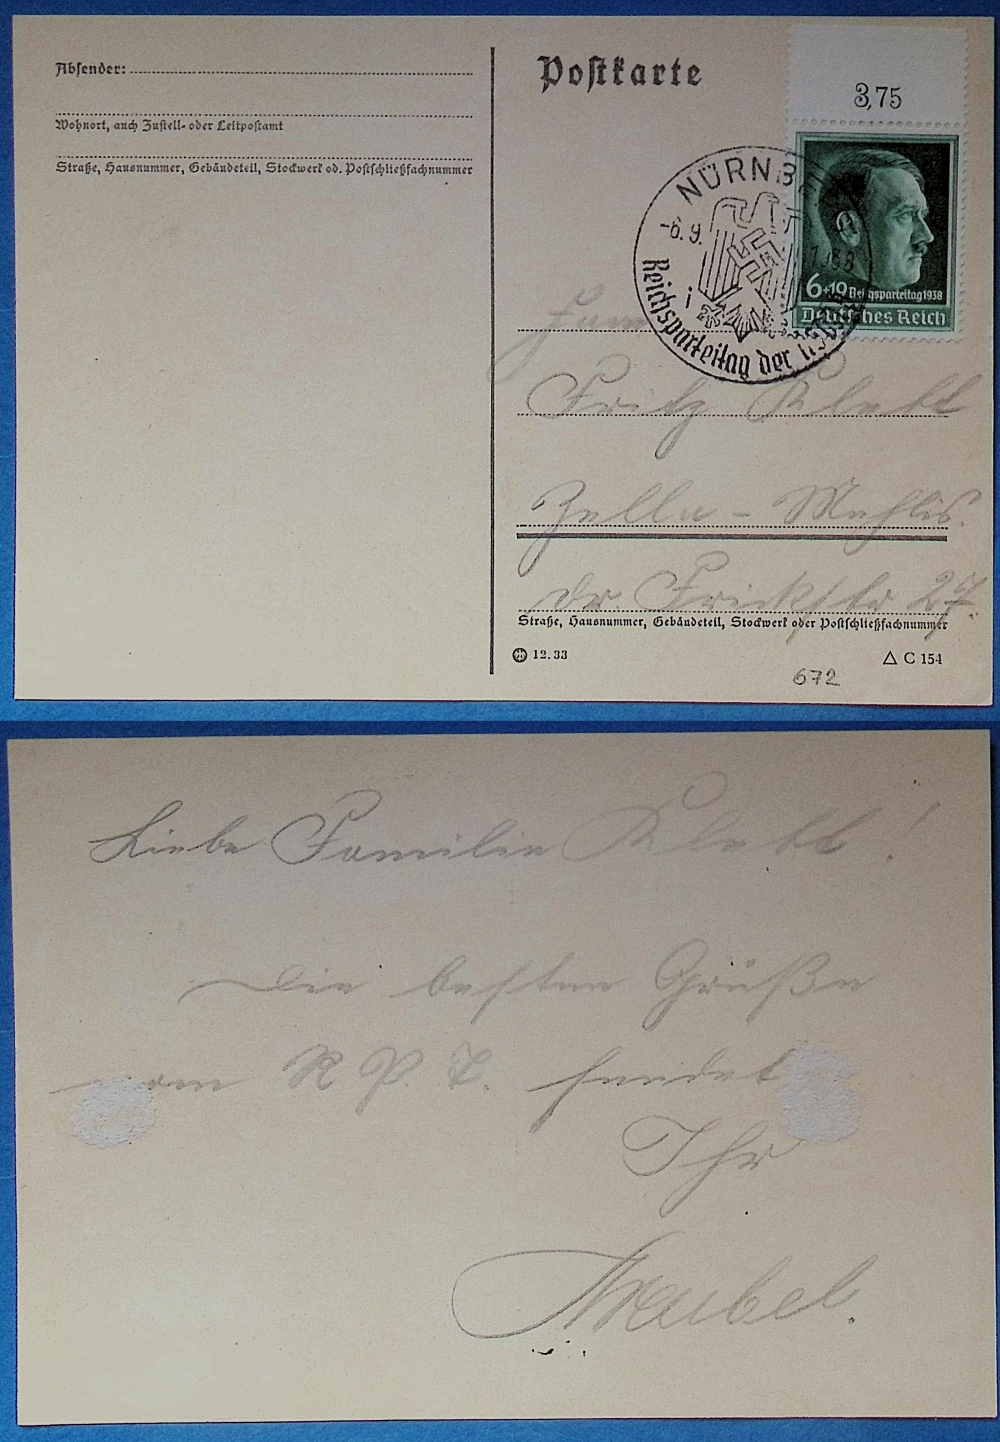 Absender:
Wohnort, auch Zustell- oder Leitpostamt
Straße, Hausnummer, Gebäudeteil, Stockwerk od. Postschließfachnummer
Postkarte
3,75
6+19 Reichsparteitag 1938
Deutsches Reich
NÜRNBE
-6.9.
Reichsparteitag der NSDAP
Fam
Fritz Klett
Zella - Mehlis.
Dr. Frickstr 27.
Straße, Hausnummer, Gebäudeteil, Stockwerk oder Postschließfachnummer
12.33
C 154
672
Liebe Familie Klett!
Die besten Grüße
vom R. P. T. sendet
Ihr